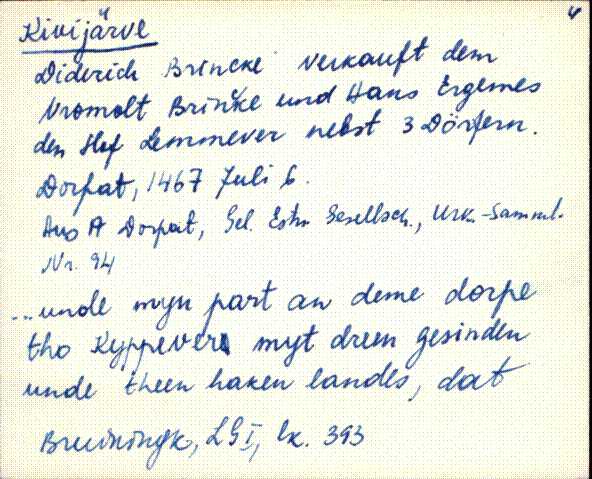 4
Kivijärve
Diderich Brincke verkauft dem
Vromolt Brinke und Hans Ergemes
den Hof Lemmever nebst 3 Dörfern.
Dorpat, 1467 Juli 6.
Aus A Dorpat, Gel. Estn Gesellsch., Urk.-Samml.
Nr. 94
...unde myn part an deme dorpe
tho Kyppevere myt dren gesinden
unde theen haken landes, dat
Bruiningk, LG I, lk. 393